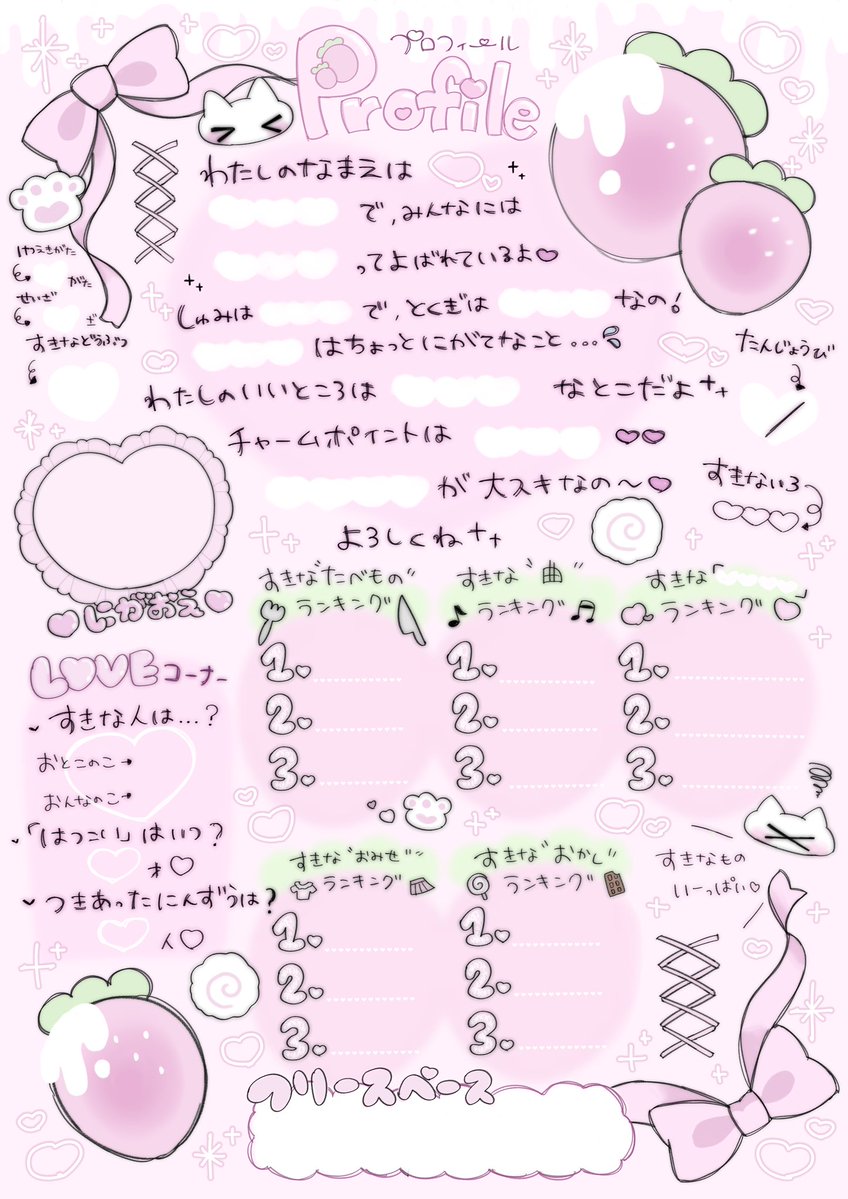 プロフィール
Profile
わたしのなまえは
で、みんなには
ってよばれているよ
しゅみは で、とくぎは なの!
はちょっとにがてなこと...
わたしのいいところは なとこだよ
チャームポイントは
が大スキなの〜
よろしくね
けつえきがた
がた
せいざ
ざ
すきなどうぶつ
たんじょうび
/
すきないろ
にがおえ
すきな"たべもの"
ランキング
1.
2.
3.
すきな"曲"
ランキング
1.
2.
3.
すきな「 」
ランキング
1.
2.
3.
LOVEコーナー
すきな人は...?
おとこのこ→
おんなのこ→
「はつこい」はいつ?
才
つきあったにんずうは?
人
すきな"おみせ"
ランキング
1.
2.
3.
すきな"おかし"
ランキング
1.
2.
3.
すきなもの
いーっぱい
フリースペース